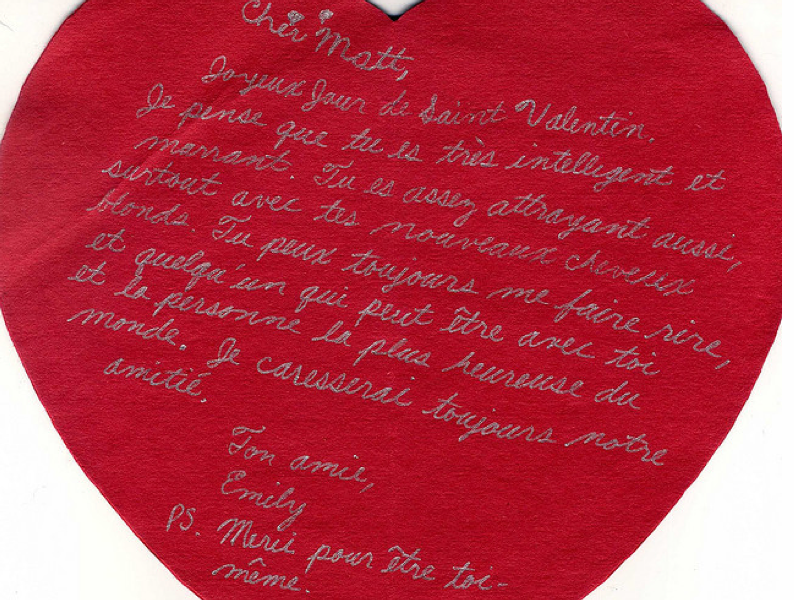 Cher Matt,
Joyeux Jour de Saint Valentin.
Je pense que tu es très intelligent et
marrant. Tu es assez attrayant aussi,
surtout avec tes nouveaux cheveux
blonds. Tu peux toujours me faire rire,
et quelqu'un qui peut être avec toi
et la personne la plus heureuse du
monde. Je caresserai toujours notre
amitié.
Ton amie,
Emily
PS. Merci pour être toi-
même.